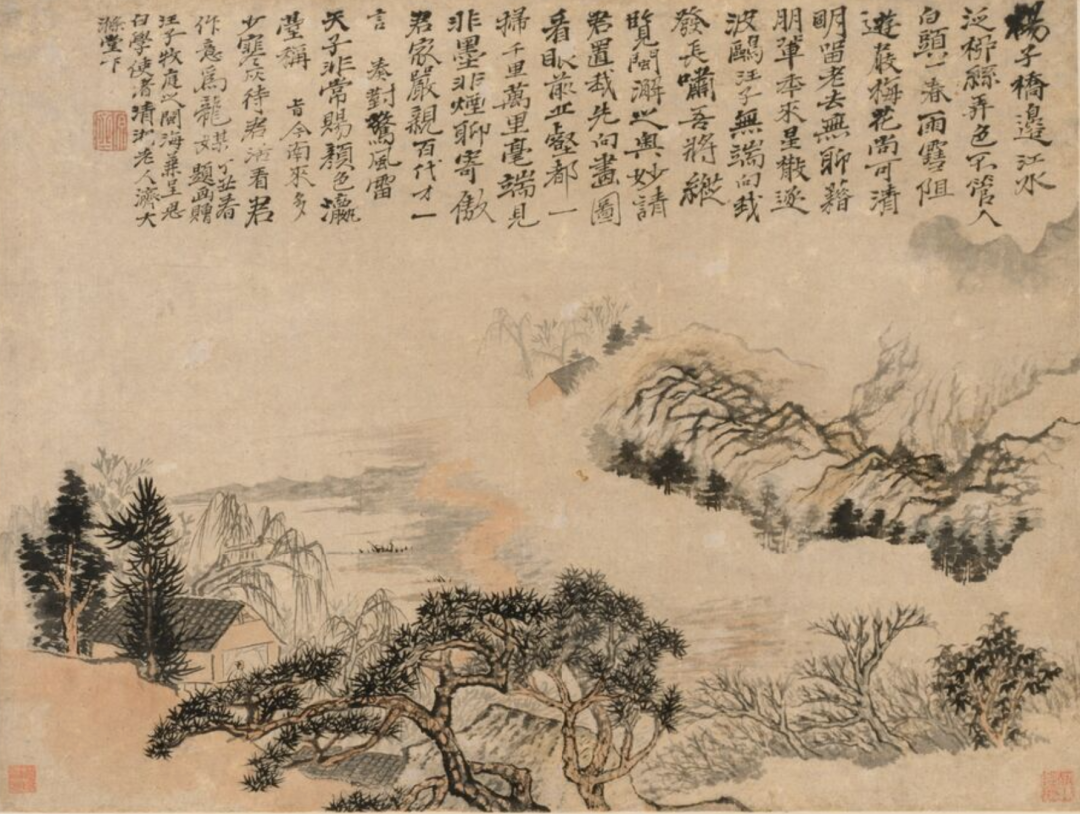 楊子橋邊江水
泛柳緜弄色不管人
白頭一春雨雪阻
遊
梅花尚可清
明留老去無聊藉
朋輩本來星散逐
波鷗汪子無端向我
發長嘯吾將縱
覽閩澥之輿妙請
君置我先向畫圖
看眼前丘壑都一
掃千里萬里毫端見
非墨非煙聊寄傲
君家嚴親百代才一
言 奏對驚風雷
天子非常賜顏色瀛
稱 旨今南來多
少寒灰待君活看君
作意為龍媒 丁丑春 題画贈
汪子牧庭之閩海兼呈思
白學使者清湘老人濟大
滌堂下